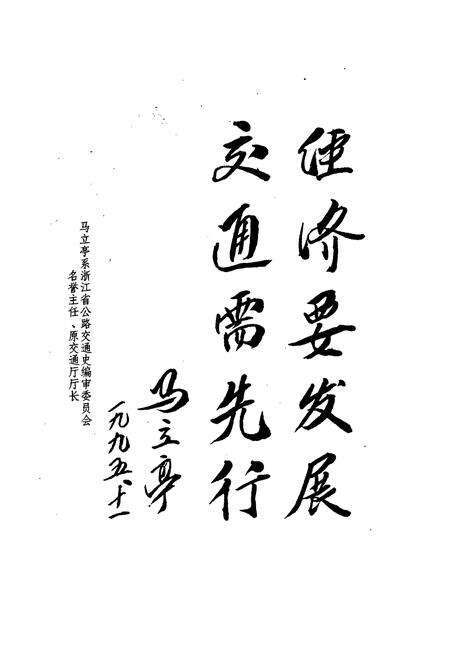 经济要发展
交通需先行
马立亭
一九九五、十一
马立亭系浙江省公路交通史编审委员会
名誉主任、原交通厅厅长